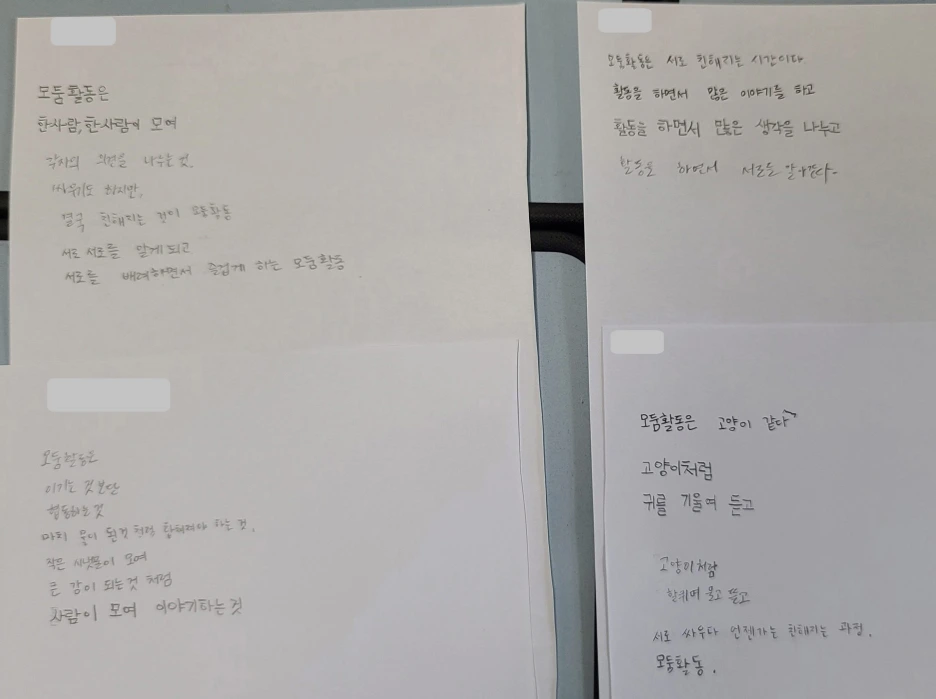 모둠활동은
한사람, 한사람이 모여
각자의 의견을 나누는 것.
싸우기도 하지만,
결국 친해지는 것이 모둠활동
서로 서로를 알게되고
서로를 배려하면서 즐겁게 하는 모둠활동.
모둠활동은 서로 친해지는 시간이다
활동을 하면서 많은 이야기를 하고
활동을 하면서 많은 생각을 나누고
활동을 하면서 서로를 알아간다.
모둠활동은
이기는 것 보단
협동하는 것
마치 하는 것.
작은 시냇물이 모여
큰 강이 되는것 처럼
사람이 모여 이야기하는 것
모둠활동은 고양이 같다
고양이처럼
귀를 기울여 듣고
고양이처럼
할퀴며 울고 뜯고
서로 싸우다 언젠가는 친해지는 과정.
모둠활동.